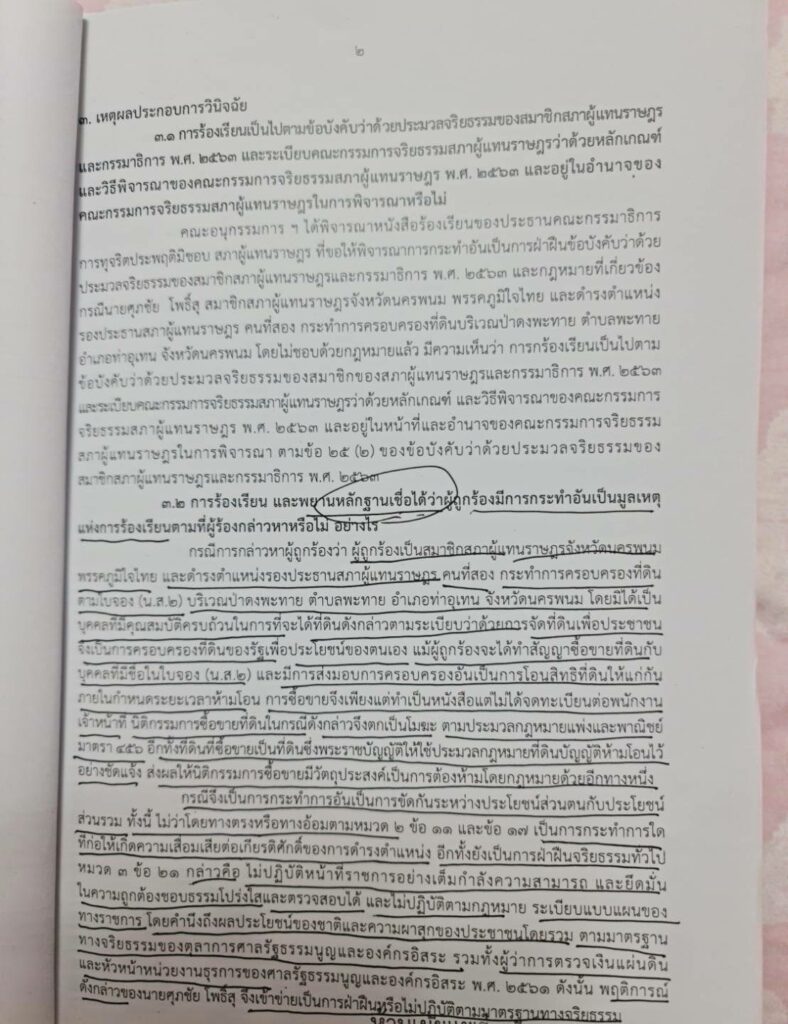 ๒
๓. เหตุผลประกอบการวินิจฉัย
๓.๑ การร้องเรียนเป็นไปตามข้อบังคับว่าด้วยประมวลจริยธรรมของสมาชิกสภาผู้แทนราษฎร
และกรรมาธิการ พ.ศ. ๒๕๖๓ และระเบียบคณะกรรมการจริยธรรมสภาผู้แทนราษฎรว่าด้วยหลักเกณฑ์
และวิธีพิจารณาของคณะกรรมการจริยธรรมสภาผู้แทนราษฎร พ.ศ. ๒๕๖๓ และอยู่ในอำนาจของ
คณะกรรมการจริยธรรมสภาผู้แทนราษฎรในการพิจารณาหรือไม่
คณะอนุกรรมการ ฯ ได้พิจารณาหนังสือร้องเรียนของประธานคณะกรรมาธิการ
การทุจริตประพฤติมิชอบ สภาผู้แทนราษฎร ที่ขอให้พิจารณาการกระทำอันเป็นการฝ่าฝืนข้อบังคับว่าด้วย
ประมวลจริยธรรมของสมาชิกสภาผู้แทนราษฎรและกรรมาธิการ พ.ศ. ๒๕๖๓ และกฎหมายที่เกี่ยวข้อง
กรณีนายศุภชัย โพธิ์สุ สมาชิกสภาผู้แทนราษฎรจังหวัดนครพนม พรรคภูมิใจไทย และดำรงตำแหน่ง
รองประธานสภาผู้แทนราษฎร คนที่สอง กระทำการครอบครองที่ดินบริเวณป่าดงพะทาย ตำบลพะทาย
อำเภอท่าอุเทน จังหวัดนครพนม โดยไม่ชอบด้วยกฎหมายแล้ว มีความเห็นว่า การร้องเรียนเป็นไปตาม
ข้อบังคับว่าด้วยประมวลจริยธรรมของสมาชิกของสภาผู้แทนราษฎรและกรรมาธิการ พ.ศ. ๒๕๖๓
และระเบียบคณะกรรมการจริยธรรมสภาผู้แทนราษฎรว่าด้วยหลักเกณฑ์ และวิธีพิจารณาของคณะกรรมการ
จริยธรรมสภาผู้แทนราษฎร พ.ศ. ๒๕๖๓ และอยู่ในหน้าที่และอำนาจของคณะกรรมการจริยธรรม
สภาผู้แทนราษฎรในการพิจารณา ตามข้อ ๒๕ (๒) ของข้อบังคับว่าด้วยประมวลจริยธรรมของ
สมาชิกสภาผู้แทนราษฎรและกรรมาธิการ พ.ศ. ๒๕๖๓
๓.๒ การร้องเรียน และพยานหลักฐานเชื่อได้ว่าผู้ถูกร้องมีการกระทำอันเป็นมูลเหตุ
แห่งการร้องเรียนตามที่ผู้ร้องกล่าวหาหรือไม่ อย่างไร
กรณีการกล่าวหาผู้ถูกร้องว่า ผู้ถูกร้องเป็นสมาชิกสภาผู้แทนราษฎรจังหวัดนครพนม
พรรคภูมิใจไทย และดำรงตำแหน่งรองประธานสภาผู้แทนราษฎร คนที่สอง กระทำการครอบครองที่ดิน
ตามใบจอง (น.ส.๒) บริเวณป่าดงพะทาย ตำบลพะทาย อำเภอท่าอุเทน จังหวัดนครพนม โดยมิได้เป็น
บุคคลที่มีคุณสมบัติครบถ้วนในการที่จะได้ที่ดินดังกล่าวตามระเบียบว่าด้วยการจัดที่ดินเพื่อประชาชน
จึงเป็นการครอบครองที่ดินของรัฐเพื่อประโยชน์ของตนเอง แม้ผู้ถูกร้องจะได้ทำสัญญาซื้อขายที่ดินกับ
บุคคลที่มีชื่อในใบจอง (น.ส.๒) และมีการส่งมอบการครอบครองอันเป็นการโอนสิทธิที่ดินให้แก่กัน
ภายในกำหนดระยะเวลาห้ามโอน การซื้อขายจึงเพียงแต่ทำเป็นหนังสือแต่ไม่ได้จดทะเบียนต่อพนักงาน
เจ้าหน้าที่ นิติกรรมการซื้อขายที่ดินในกรณีดังกล่าวจึงตกเป็นโมฆะ ตามประมวลกฎหมายแพ่งและพาณิชย์
มาตรา ๔๕๖ อีกทั้งที่ดินที่ซื้อขายเป็นที่ดินซึ่งพระราชบัญญัติให้ใช้ประมวลกฎหมายที่ดินบัญญัติห้ามโอนไว้
อย่างชัดแจ้ง ส่งผลให้นิติกรรมการซื้อขายมีวัตถุประสงค์เป็นการต้องห้ามโดยกฎหมายด้วยอีกทางหนึ่ง
กรณีจึงเป็นการกระทำการอันเป็นการขัดกันระหว่างประโยชน์ส่วนตนกับประโยชน์
ส่วนรวม ทั้งนี้ ไม่ว่าโดยทางตรงหรือทางอ้อมตามหมวด ๒ ข้อ ๑๑ และข้อ ๑๗ เป็นการกระทำการใด
ที่ก่อให้เกิดความเสื่อมเสียต่อเกียรติศักดิ์ของการดำรงตำแหน่ง อีกทั้งยังเป็นการฝ่าฝืนจริยธรรมทั่วไป
หมวด ๓ ข้อ ๒๑ กล่าวคือ ไม่ปฏิบัติหน้าที่ราชการอย่างเต็มกำลังความสามารถ และยึดมั่น
ในความถูกต้องชอบธรรมโปร่งใสและตรวจสอบได้ และไม่ปฏิบัติตามกฎหมาย ระเบียบแบบแผนของ
ทางราชการ โดยคำนึงถึงผลประโยชน์ของชาติและความผาสุกของประชาชนโดยรวม ตามมาตรฐาน
ทางจริยธรรมของตุลาการศาลรัฐธรรมนูญและองค์กรอิสระ รวมทั้งผู้ว่าการตรวจเงินแผ่นดิน
และหัวหน้าหน่วยงานธุรการของศาลรัฐธรรมนูญและองค์กรอิสระ พ.ศ. ๒๕๖๑ ดังนั้น พฤติการณ์
ดังกล่าวของนายศุภชัย โพธิ์สุ จึงเข้าข่ายเป็นการฝ่าฝืนหรือไม่ปฏิบัติตามมาตรฐานทางจริยธรรม